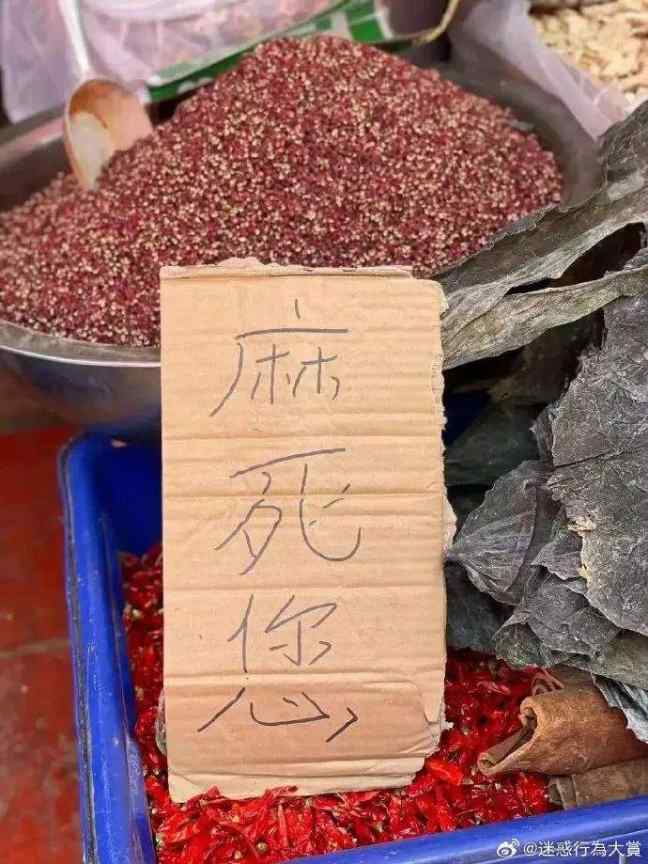 麻
死
您
@迷惑行為大賞